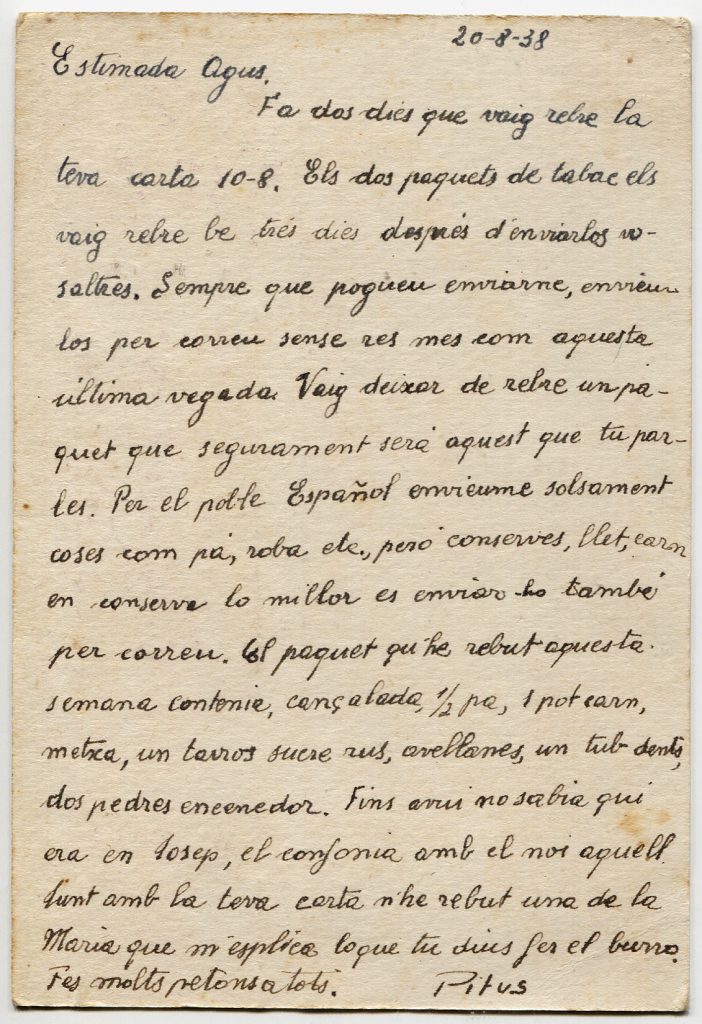 20-8-38
Estimada Agus.
Fa dos dies que vaig rebre la
teva carta 10-8. Els dos paquets de tabac els
vaig rebre be tres dies després d'enviarlos vo-
saltres. Sempre que pogueu enviarne, envieu-
los per correu sense res mes com aquesta
última vegada. Vaig deixar de rebre un pa-
quet que segurament será aquest que tu par-
les. Per el poble Español envieume solsament
coses com pá, roba etc., peró conserves, llet, carn
en conserva lo millor es enviar-ho també
per correu. El paquet qu'he rebut aquesta
semana contenia, cançalada, 1/2 pa, 1 pot carn,
metxa, un tarros sucre rus, avellanes, un tub dents,
dos pedres encenedor. Fins avui no sabia qui
era en Josep, el confonia amb el noi aquell.
Junt amb la teva carta n'he rebut una de la
Maria que m'esplica loque tu dius fer el burro.
Fes molts petons a tots. Pitus